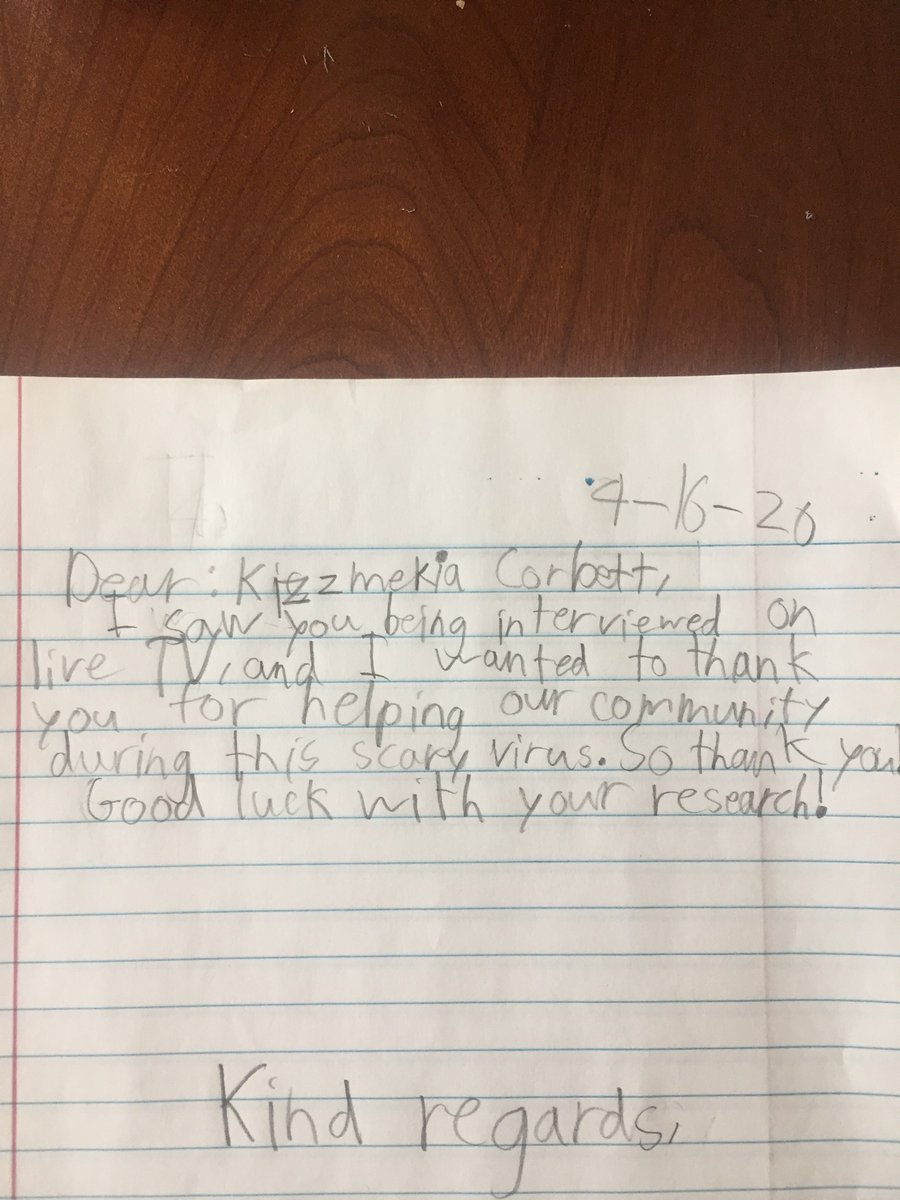 4-16-20
Dear: Kizzmekia Corbett,
I saw you being interviewed on
live TV, and I wanted to thank
you for helping our community
during this scary virus. So thank you!
Good luck with your research!
Kind regards,